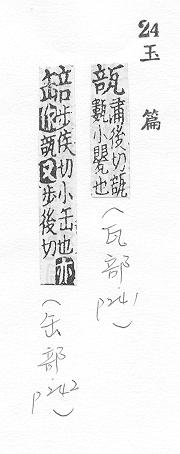 24
玉篇
瓿
蒲後切瓿
甊小甖也
(瓦部.p241)
䍌
步侯切小缶也亦
作瓿又步後切
(缶部.p242)